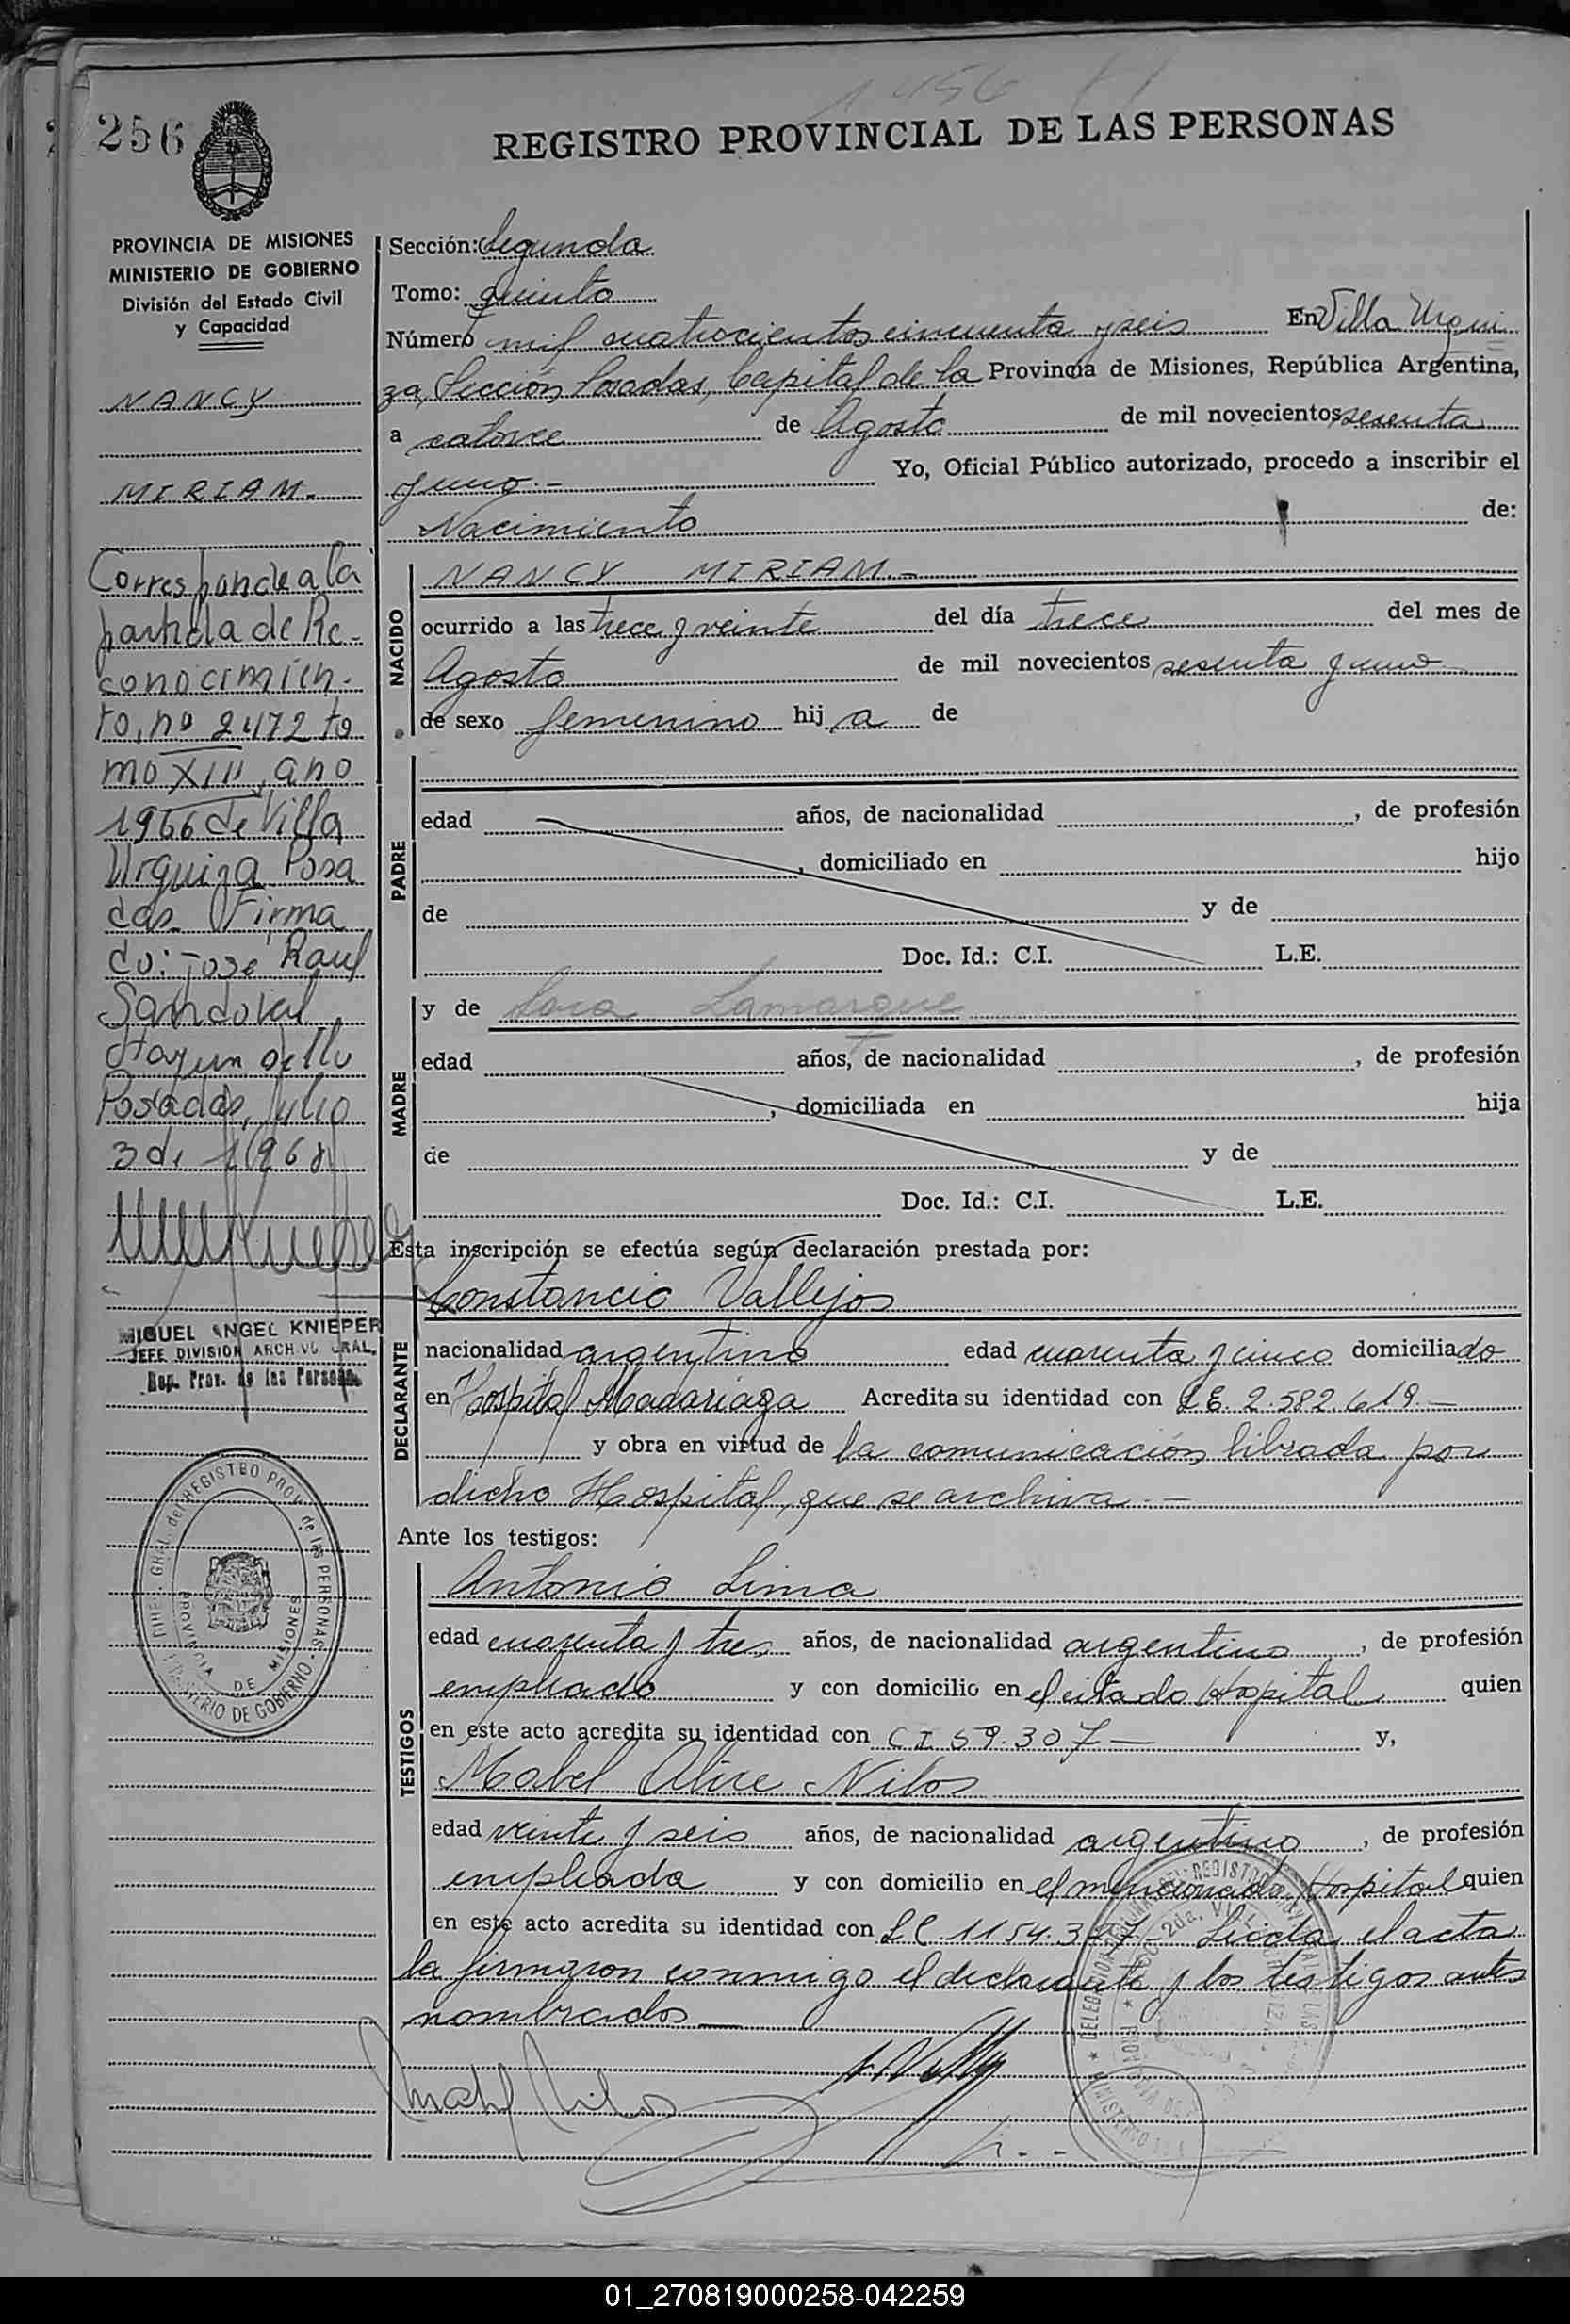 1456
256
REGISTRO PROVINCIAL DE LAS PERSONAS
PROVINCIA DE MISIONES
MINISTERIO DE GOBIERNO
División del Estado Civil
y Capacidad
NANCY
MIRIAM.
Corresponde a la
partida de Re-
conocimien-
to, nº 2472 to
mo XIII, año
1966 de Villa
Urquiza Posa
das Firma
do: José Raul
Sandoval
Hay un sello
Posadas, Julio
3 de 1968
MIGUEL ANGEL KNIEPER
JEFE DIVISION ARCHIVO GRAL.
Rep. Prov. de las Personas
DIREC. GRAL. del REGISTRO PROV. de las PERSONAS
MINISTERIO DE GOBIERNO
PROVINCIA DE MISIONES
Sección: Segunda
Tomo: quinto
Número mil cuatrocientos cincuenta y seis En Villa Urqui
za, Sección Posadas, Capital de la Provincia de Misiones, República Argentina,
a catorce de Agosto de mil novecientos sesenta
y uno.- Yo, Oficial Público autorizado, procedo a inscribir el
Nacimiento de:
NACIDO
NANCY MIRIAM.-
ocurrido a las trece y veinte del día trece del mes de
Agosto de mil novecientos sesenta y uno
de sexo femenino hij a de
PADRE
edad años, de nacionalidad , de profesión
, domiciliado en hijo
de y de
Doc. Id.: C.I. L.E.
MADRE
y de Lamarque
edad años, de nacionalidad , de profesión
, domiciliada en hija
de y de
Doc. Id.: C.I. L.E.
Esta inscripción se efectúa según declaración prestada por:
DECLARANTE
Constancio Vallejos
nacionalidad argentino edad cuarenta y cinco domiciliado
en Hospital Madariaga Acredita su identidad con LE 2.582.619.-
y obra en virtud de la comunicación librada por
dicho Hospital, que se archiva.-
Ante los testigos:
TESTIGOS
Antonio Lima
edad cuarenta y tres años, de nacionalidad argentino , de profesión
empleado y con domicilio en el citado Hospital quien
en este acto acredita su identidad con C I 59.307 - y,
Mabel Alice Nilos
edad veinte y seis años, de nacionalidad argentino , de profesión
empleada y con domicilio en el mencionado Hospital quien
en este acto acredita su identidad con LC 1154.327- Leída el acta
la firmaron conmigo el declarante y los testigos antes
nombrados
Mabel Nilos
01_270819000258-042259